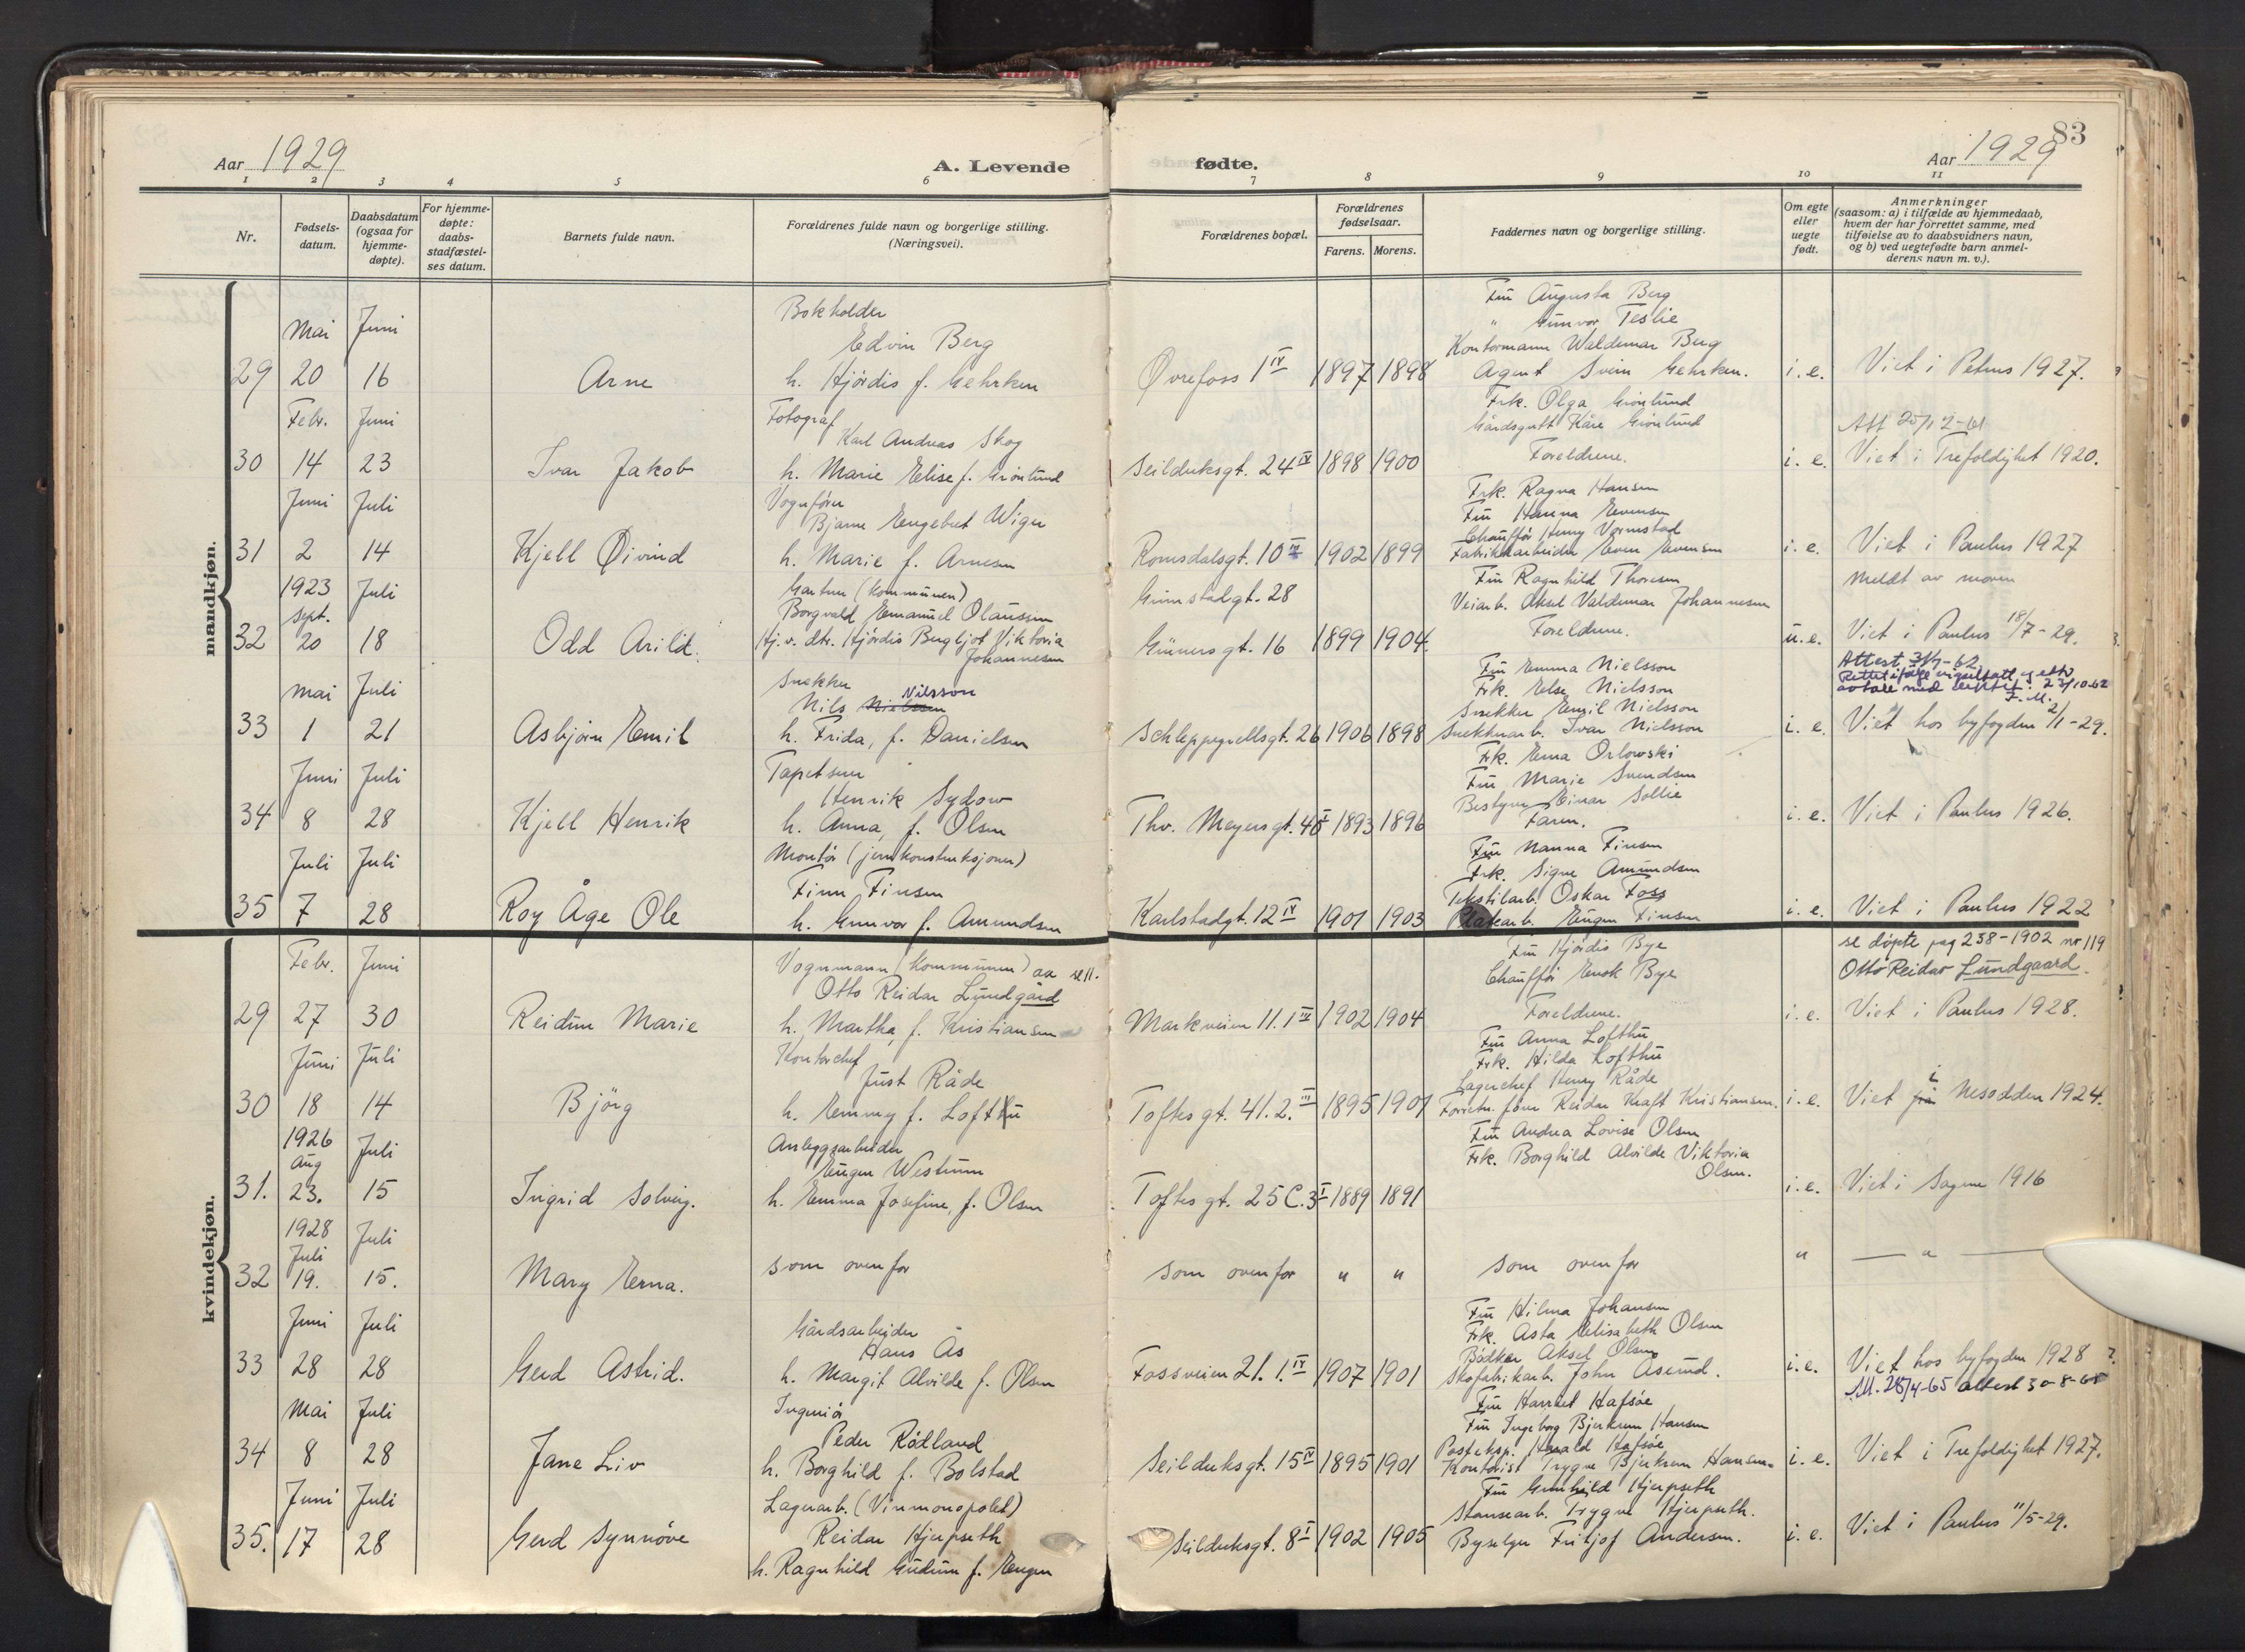 83
Aar 1929
A. Levende
fødte.
Aar 1929
1 2 3 4 5 6 7 8 9 10 11
Nr.
Fødsels-
datum.
Daabsdatum
(ogsaa for
hjemme-
døpte).
For hjemme-
døpte:
daabs-
stadfæstel-
ses datum.
Barnets fulde navn.
Forældrenes fulde navn og borgerlige stilling.
(Næringsvei).
Forældrenes bopæl.
Forældrenes
fødselsaar.
Farens. Morens.
Faddernes navn og borgerlige stilling.
Om egte
eller
uegte
født.
Anmerkninger
(saasom: a) i tilfælde av hjemmedaab,
hvem der har forrettet samme, med
tilføielse av to daabsvidners navn,
og b) ved uegtefødte barn anmel-
derens navn m. v.).
mandkjøn.
29
Mai
20
Juni
16
Arne
Bokholder
Edvin Berg
h. Hjördis f. Gehrken
Øvrefoss 1 IV
1897 1898
Fru Augusta Berg
" Gunvor Teslie
Kontormann Waldemar Berg
Agent Svein Gehrken.
i. e.
Viet i Petrus 1927.
30
Febr.
14
Juni
23
Ivar Jakob
Fotograf
Karl Andreas Skog
h. Marie Elise f. Grönlund
Seilduksgt. 24 IV
1898 1900
Frk. Olga Grönlund
Gårdsgutt Kåre Grönlund
Foreldrene.
i. e.
Viet i Trefoldighet 1920.
31
Juni
2
Juli
14
Kjell Øivind
Vognfører
Bjarne Engebret Wiger
h. Marie f. Arnesen
Romsdalsgt. 10 IV
1902 1899
Frk. Ragna Hansen
Fru Hanna Evensen
Chauffør Henry Vormstad
Fabrikkarbeider Even Evensen
i. e.
Viet i Paulus 1927
32
1923
Sept.
20
Juli
18
Odd Arild.
Gartner (kommunen)
Borgvald Emanuel Olaussen
Hj.v. dtr. Hjördis Bergljot Viktoria
Johannesen
Grimstadgt. 28
Grüners gt. 16
1899 1904.
Fru Ragnhild Thoresen
Veiarb. Aksel Valdemar Johannesen
Foreldrene.
u. e.
Meldt av moren
Viet i Paulus 18/7-29.
33
Mai
1
Juli
21
Asbjørn Emil
Snekker
Nils Nielssen Nilsson
h. Frida, f. Danielsen
Schleppegrellsgt. 26
1906 1898
Fru Emma Nielsson
Frk. Else Nielsson
Snekker Emil Nielsson
Snekkerarb. Ivar Nielsson
i. e.
Viet hos byfogden 2/1-29.
34
Juni
8
Juli
28
Kjell Henrik
Tapetserer
Henrik Sydow
h. Anna, f. Olsen
1893 1896
Frk. Erna Orlowski
Fru Marie Svendsen
Bestyrer Einar Sollie
Faren.
i. e.
Viet i Paulus 1926.
35
Juli
7
Juli
28
Roy Åge Ole
Montör (jernkonstruksjoner)
Finn Finsen
h. Gunvor f. Amundsen
Karlstadgt. 12 IV
1901 1903
Fru Nanna Finsen
Frk. Signe Amundsen
Tekstilarb. Oskar Foss
Platearb. Eugen Finsen
i. e.
Viet i Paulus 1922
kvindekjøn.
29
Febr.
27
Juni
30
Reidun Marie
Vognmann (kommunen) aa se 11.
Otto Reidar Lundgård
h. Martha, f. Kristiansen
Markveien 11. 1 IV
1902 1904
Fru Hjördis Bye
Chauffør Enok Bye
Foreldrene.
i. e.
se döpte pag 238-1902 nr 119
Otto Reidar Lundgaard.
Viet i Paulus 1928.
30
Juni
18
Juli
14
Björg
Kontorchef
Just Råde
h. Emmy f. Lofthu
Toftes gt. 41. 2. III
1895 1901
Fru Anna Lofthu
Frk. Hilda Lofthu
Lagerchef Henry Råde
Reidar Kraft Kristiansen.
i. e.
Viet på i Nesodden 1924.
31.
1926
Aug
23.
Juli
15
Ingrid Solveig.
Anleggsarbeider
Eugen Westrum
h. Emma Josefine, f. Olsen
Toftes gt. 25 C. 3 I
1889 1891
Fru Andrea Lovise Olsen
Frk. Borghild Alvilde Viktoria
Olsen.
i. e.
Viet i Sagene 1916
32
1928
Juli
19.
Juli
15.
Mary Erna.
som ovenfor
som ovenfor
" "
som ovenfor
"
— " —
33
Juni
28
Juli
28
Gerd Astrid.
Gårdsarbeider
Hans Ås
h. Margit Alvilde f. Olsen
Fossveien 21. 1. IV
1907 1901
Fru Hilma Johansen
Frk. Asta Elisabeth Olsen
Bödker Aksel Olsen
Skofabrikarb. John Åserud.
i. e.
Viet hos byfogden 1928
34
Mai
8
Juli
28
Jane Liv
Ingeniör
Peder Rödland
h. Borghild f. Bolstad
Seilduksgt. 15 IV
1895 1901
Fru Harriet Hafsöe
Fru Ingeborg Bjerkrem Hansen
Posteksp. Harald Hafsöe
Kontorist Trygve Bjerkrem Hansen.
i. e.
Viet i Trefoldighet 1927.
35.
Juni
17
Juli
28
Gerd Synnöve
Lagerarb. (Vinmonopolet)
Reidar Hjerpseth
h. Ragnhild Gudrun f. Engen
Seilduksgt. 8 I
1902 1905
Fru Gunhild Hjerpseth
Stansearb. Trygve Hjerpseth.
Byselger Fritjof Andersen.
i. e.
Viet i Paulus 11/5-29.